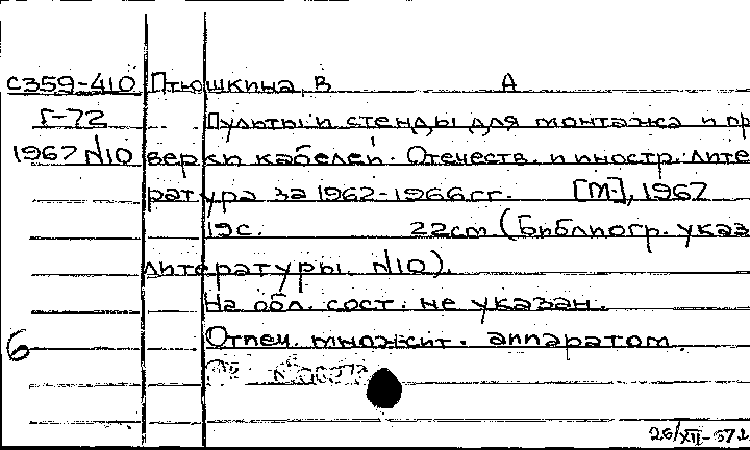 С359-410 Птюшкина, В А
Г-72 Пульты и стенды для монтажа и пр
1967 №10 верки кабелей. Отечеств. и иностр. лите
ратура за 1962-1966гг. [М.], 1967
19с. 22см (Библиогр. указ
литературы. №10).
На обл. сост. не указан.
Отпеч. множит. аппаратом.
6
26/XII-67г.